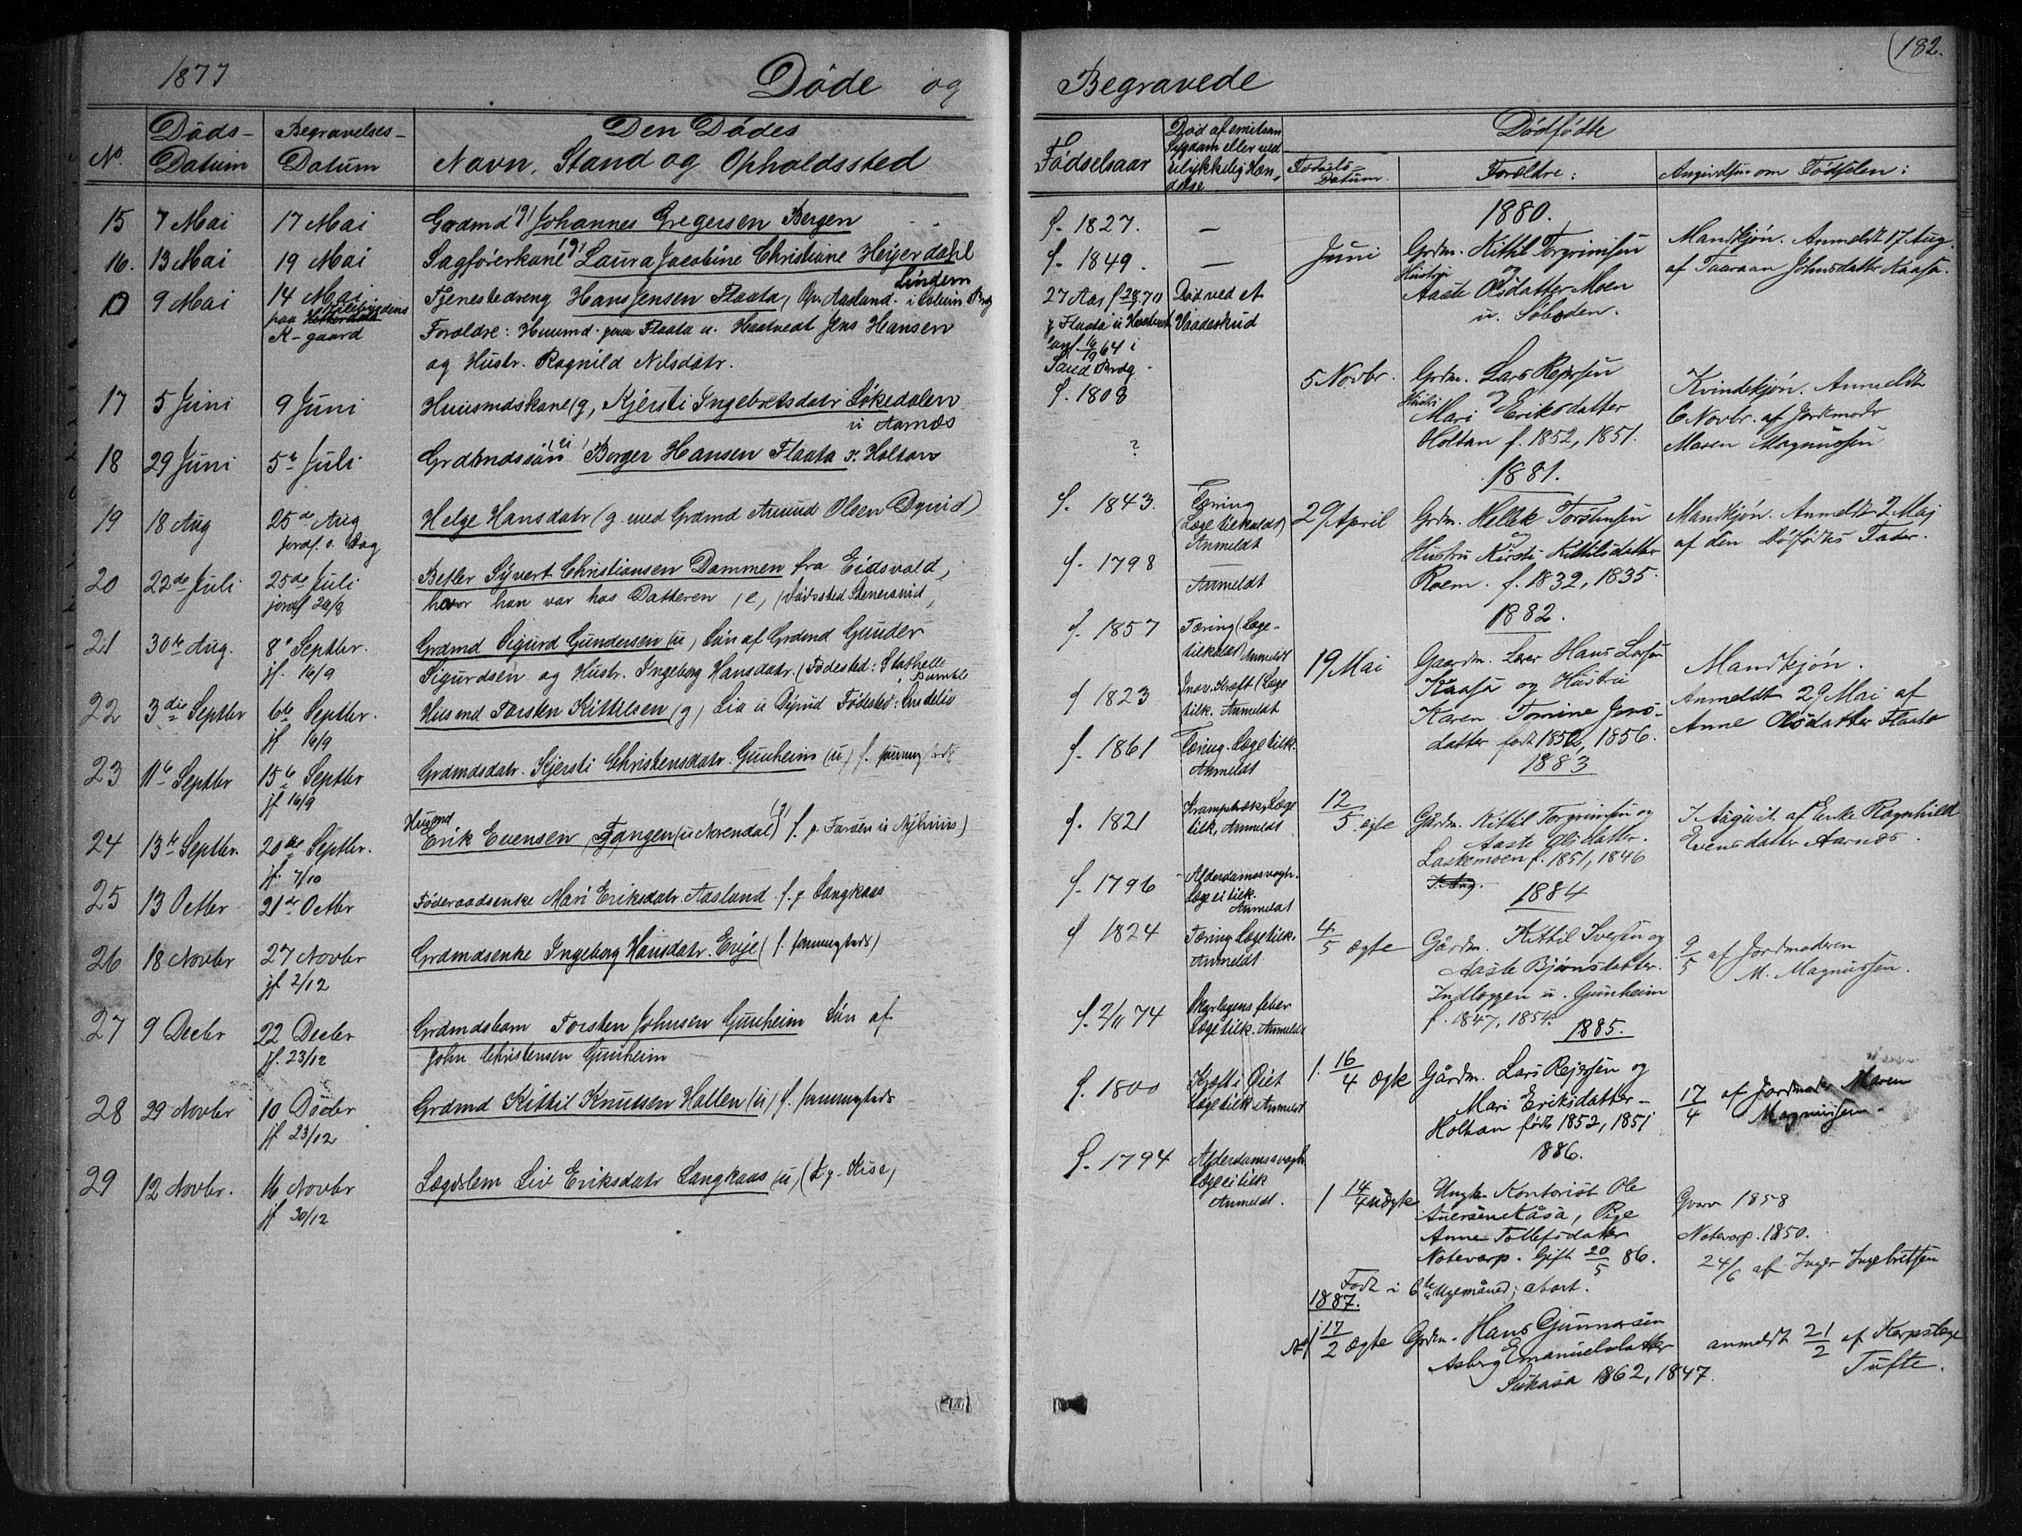 1877 Døde og
Døds-
Begravelses-
Den Dødes
No.
Datum
Datum
Navn, Stand og Opholdssted
15 7 Mai 17 Mai Grdmd (g) Johannes Gregersen Bergen
16. 13 Mai 19 Mai Sagførerkone (g) Laura Jacobine Christiane Heyerdahl
Lindem
9 Mai 14 Mai Tjenestedreng Hans Jensen Flaata, Aaslund
paa
K-gaard
Forældre: Huusmd. Flaata u. Haatvedt Jens Hansen
og Hustr. Ragnild Nilsdatr.
17 5 Juni 9 Juni Huusmdskone (g, Kjersti Ingebretsdatr Løkedalen
u Aarnæs
18 29 Juni 5te Juli Grdmdssøn (u) Borger Hansen Flaata v. Holtan
19 18 Aug 25de Aug Helge Hansdatr (g med Grdmd Amund Olsen Dyrud)
jordf. s. Dag
20 22de Juli 25de Juli Betler Syvert Christiansen Dammen fra Eidsvold,
jordf 20/8 hvor han var hos Datteren, e, (Dødssted Stenersrud,
21 30te Aug. 8de Septbr. Grdmd Sigurd Gundersen (u, Søn af Grdmd Gunder
jf. 16/9 Sigurdsen og Hustr. Ingeborg Hansdatr. (Fødested: Stathelle
Bamble
22 3die Septbr 6te Septbr. Husmd Torsten Kittilsen (g) Lia u Dyrud Fødested: Lindelia
jf 16/9
23 11te Septbr 15te Septbr Grdmdsdatr. Kjersti Christensdatr. Gunheim (u) f.
jf 16/9
Husmd
24 13te Septbr. 20de Septbr. Erik Evensen Tangen (u Norendal) (g) f. p. u Nyhuus)
jf. 7/10
25 13 Octbr 21de Octbr Føderaadsenke Mari Eriksdatr. Aaslund f. p. Langkaas
26 18 Novbr 27 Novbr Grdmdsenke Ingeborg Hansdatr. Evje (f. sammesteds)
jf 2/12
27 9 Decbr 22 Decbr Grdmdsbarn Torsten Johnsen Gunheim Søn af
jf. 23/12 John Christensen Gunheim
28 29 Novbr 10 Decbr Grdmd Kittil Knutsen Holten (u) f. sammesteds
jf 23/12
29 12 Novbr. 16 Novbr Lægdslem Liv Eriksdatr Langkaas (u) (f. p. Kise,
jf 30/12
Begravede
182.
Fødselsaar
Død af smitsom
Sygdom eller ved
ulykkelig Hæn-
delse
Dødfødte
Fødsels-
Datum.
Forældre:
Angivelsen om Fødselen:
1880.
f. 1827. —
f. 1849. —
27 Aar Død ved et
Vaadeskud
f. 1808
?
f. 1843. Tæring
(Læge tilkaldt)
Anmeldt
f. 1798 —
Anmeldt
f. 1857 Tæring (Læge-
tilkaldt) Anmeldt
f 1823 Kræft (Læge
tilk. Anmeldt
f. 1861 Tæring. Læge tilk.
Anmeldt
f. 1821 Læge
tilk, Anmeldt
f. 1796 Alderdomssvagh.
Læge ei tilk.
Anmeldt
f 1824 Tæring Læge tilk.
Anmeldt
f. 2/11 74
Læge tilk. Anmeldt
f. 1800 Kræft i Øiet
Læge tilk Anmeldt
f. 1794 Alderdomssvagh
Læge ei tilk
Anmeldt.
Juni Grdm. Kittil Torgrimsen Mandkjøn. Anmeldt 17 Aug.
Hustru Aaste Olsdatter Moen af Taaraan Johnsdatter Kaasa.
u. Søboden.
5 Novbr. Grdm. Lars Rejersen Kvindekjøn. Anmeldt
Hustru Mari Eriksdatter 6 Novbr. af Jordmodr
Holtan f. 1852, 1851. Maren Magnussen
1881.
29 April Grdm. Hellek Torstensen Mandkjøn. Anmeldt 2 Maj
Hustru Kirsti Kittilsdatter af den Dødfødtes Fader.
Roem. f. 1832, 1835.
1882.
19 Mai Gaardm. Lærer Hans Larsen Mandkjøn.
Kaasa og Hustru Anmeldt 29 Mai af
Karen Tomine Jens- Anne Olsdatter Flaata
datter født 1852, 1856.
1883
12/5. ægte Gårdm. Kittil Torgrimsen og I August af Enke Ragnhild
Aaste Olsdatter Evensdatter Aarnæs.
Laskemoen f. 1851, 1846
I Aug.
1884
4/5 ægte Gårdm. Kittil Iversen og 9/5 af Jordmoderen
Aaste Bjørnsdatter. M. Magnussen.
Indlæggen u. Gunheim
f. 1847, 1854.
1885.
1. 16/4 ægte Gårdm. Lars Rejersen og 17/4 af Jordmodr Maren
Mari Eriksdatter - Magnussen.
Holtan født 1852, 1851
1886.
1 14/4 uægte Ungk. Kontorist Ole Gvarv 1858
Auensen Kåsa, Pige
Anne Tollefsdatter Notevarp. 1850.
Notevarp. Gift 20/5 86. 24/6 af Inger Ingebretsen
Født i 6te Ugemåned; abort.
1887.
No 1 17/2 ægte Grdm. Hans Gunnarsen anmeldt 21/2 af Korpslæge
Asberg Emanuelsdatter Tufte.
Sukasa 1862, 1847.